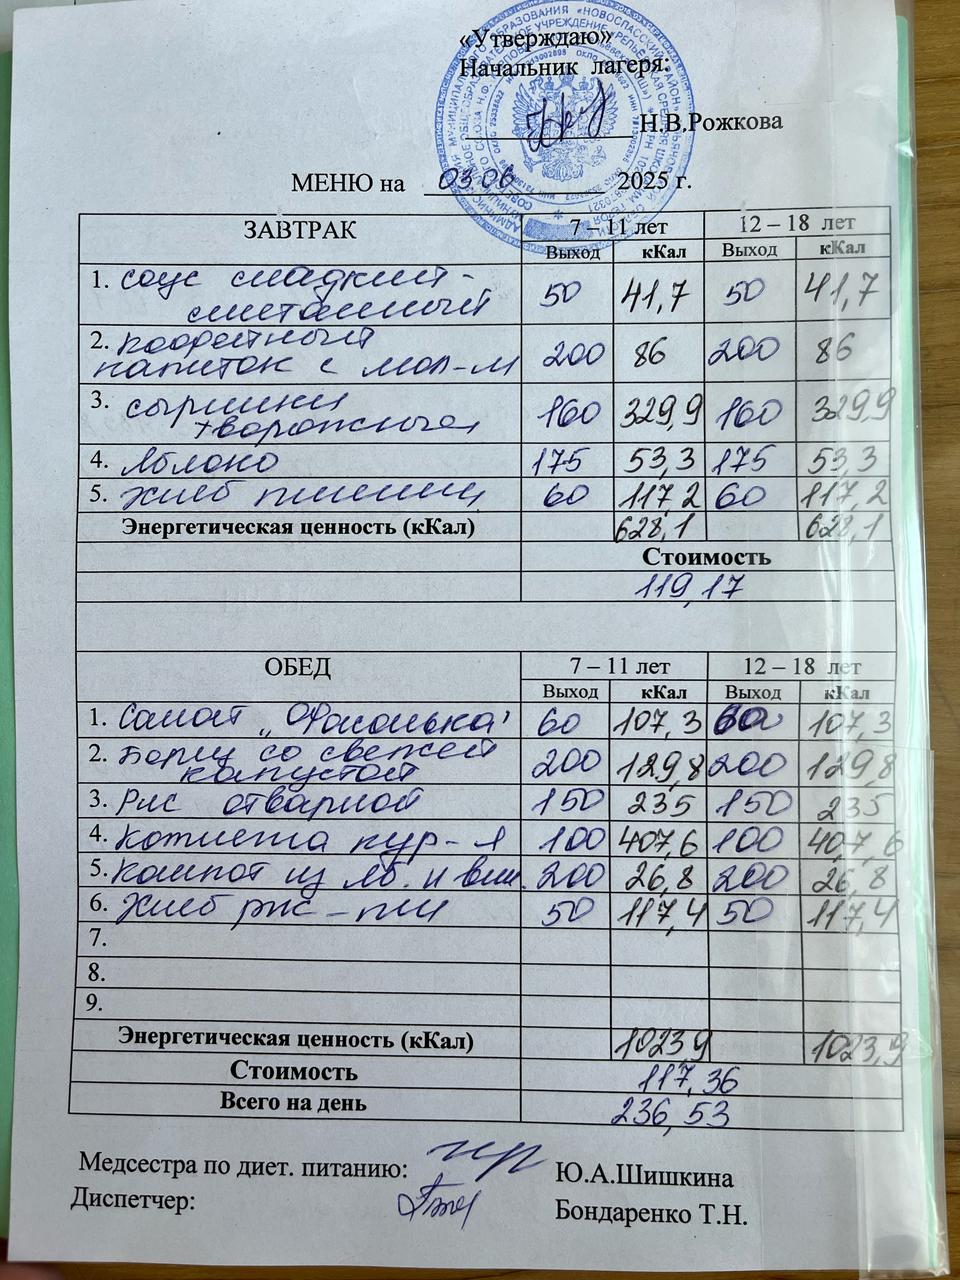 «Утверждаю»
Начальник лагеря:
Н.В.Рожкова
МЕНЮ на 03.06 2025 г.
ЗАВТРАК 7 – 11 лет 12 – 18 лет
Выход кКал Выход кКал
1. Соус сладкий - 50 41,7 50 41,7
сметанный
2. Кофейный 200 86 200 86
напиток с мол-м
3. сырники 160 329,9 160 329,9
творожные
4. Яблоко 175 53,3 175 53,3
5. Хлеб пшениц 60 117,2 60 117,2
Энергетическая ценность (кКал) 628,1 628,1
Стоимость
119,17
ОБЕД 7 – 11 лет 12 – 18 лет
Выход кКал Выход кКал
1. Салат „Фасолька" 60 107,3 60 107,3
2. Борщ со свежей 200 129,8 200 129,8
капустой
3. Рис отварной 150 235 150 235
4. Котлета кур-я 100 407,6 100 407,6
5. Компот из яб. и виш. 200 26,8 200 26,8
6. Хлеб рж-пш 50 117,4 50 117,4
7.
8.
9.
Энергетическая ценность (кКал) 1023,9 1023,9
Стоимость 117,36
Всего на день 236,53
Медсестра по диет. питанию: Ю.А.Шишкина
Диспетчер: Бондаренко Т.Н.